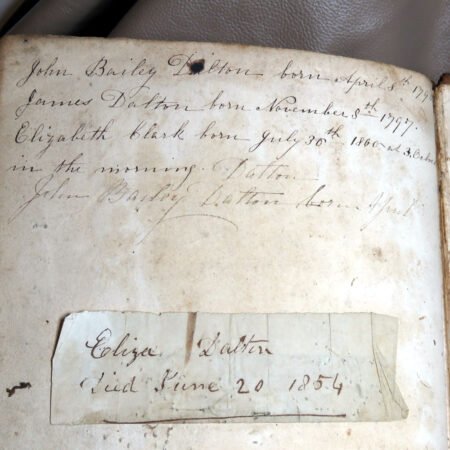 John Bailey Dalton born April 8th 179
James Dalton born November 8th 1797.
Elizabeth Clark born July 30th 1860 at 3.
in the morning. Dalton
John Bailey Dalton born April
Eliza Dalton
Died June 20 1854